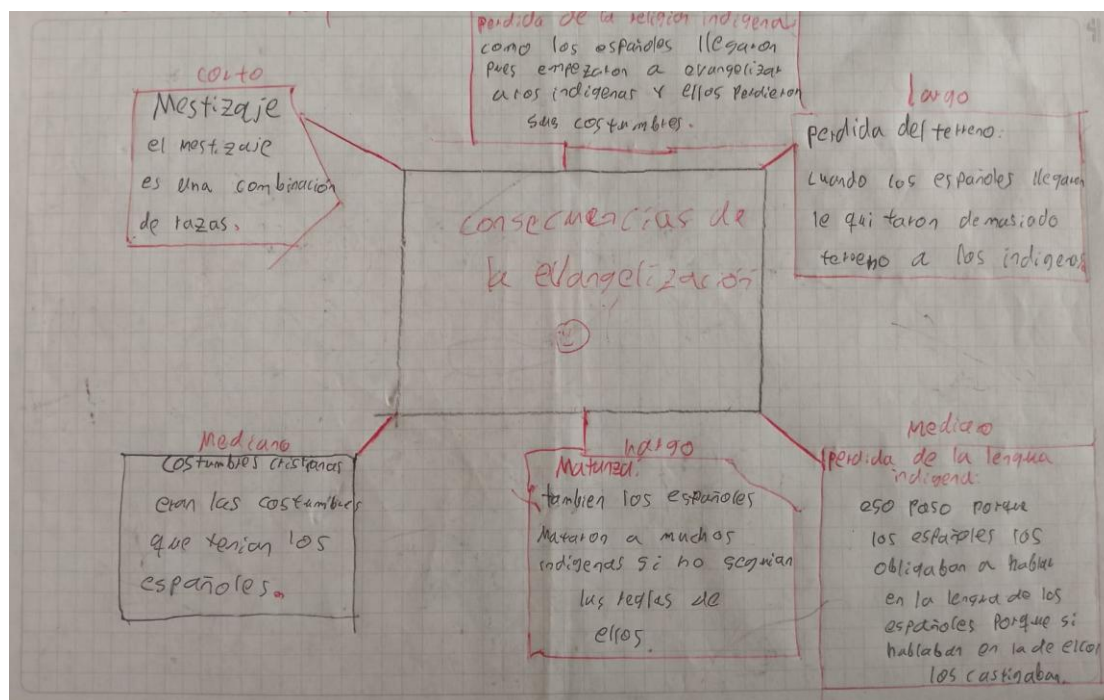 perdida de la religion indigena:
como los españoles llegaron
pues empezaron a evangelizar
a los indigenas y ellos perdieron
sus costumbres.
corto
Mestizaje
el mestizaje
es una combinación
de razas.
largo
perdida del terreno:
cuando los españoles llegaron
le quitaron demasiado
terreno a los indigenas
consecuencias de
la evangelización
Mediano
costumbres cristianas
eran las costumbres
que tenian los
españoles.
largo
Matanza:
tambien los españoles
mataron a muchos
indigenas si no seguian
las reglas de
ellos.
Mediano
perdida de la lengua
indigena:
eso paso porque
los españoles los
obligaban a hablar
en la lengua de los
españoles porque si
hablaban en la de ellos
los castigaban.